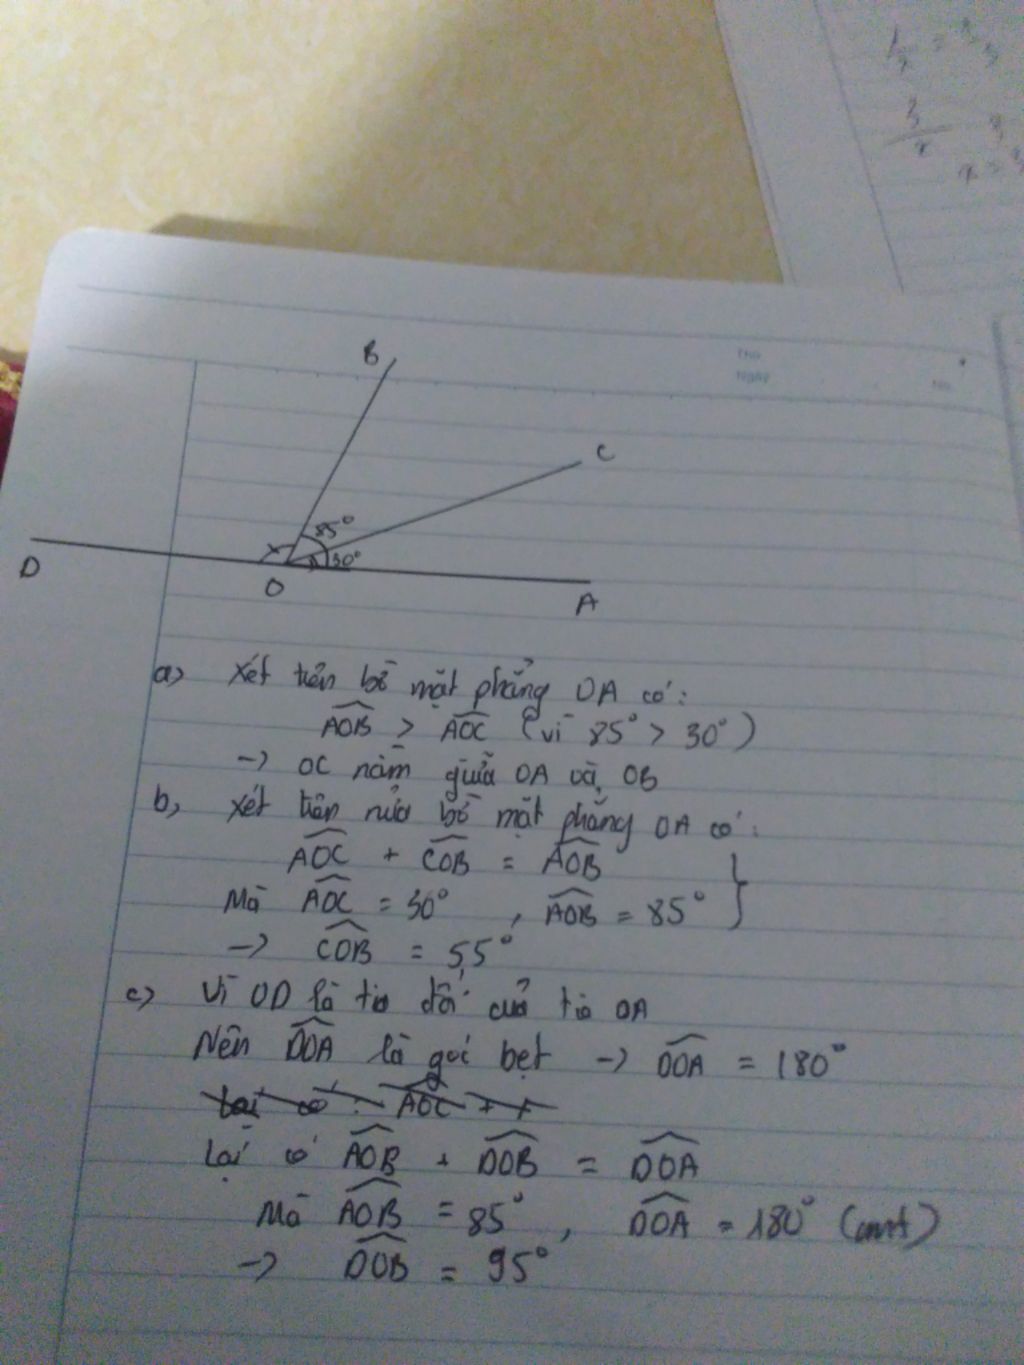 B
C
85°
x
30°
D
O
A
Thứ
Ngày
No.
a) Xét trên bờ mặt phẳng OA có:
AOB > AOC (vì 85° > 30°)
→ OC nằm giữa OA và OB
b, Xét trên nửa bờ mặt phẳng OA có:
AOC + COB = AOB
Mà AOC = 30°, AOB = 85° }
→ COB = 55°
c) Vì OD là tia đối của tia OA
Nên DOA là góc bẹt → DOA = 180°
Lại có : AOC +
Lại có AOB + DOB = DOA
Mà AOB = 85°, DOA = 180° (cmt)
→ DOB = 95°